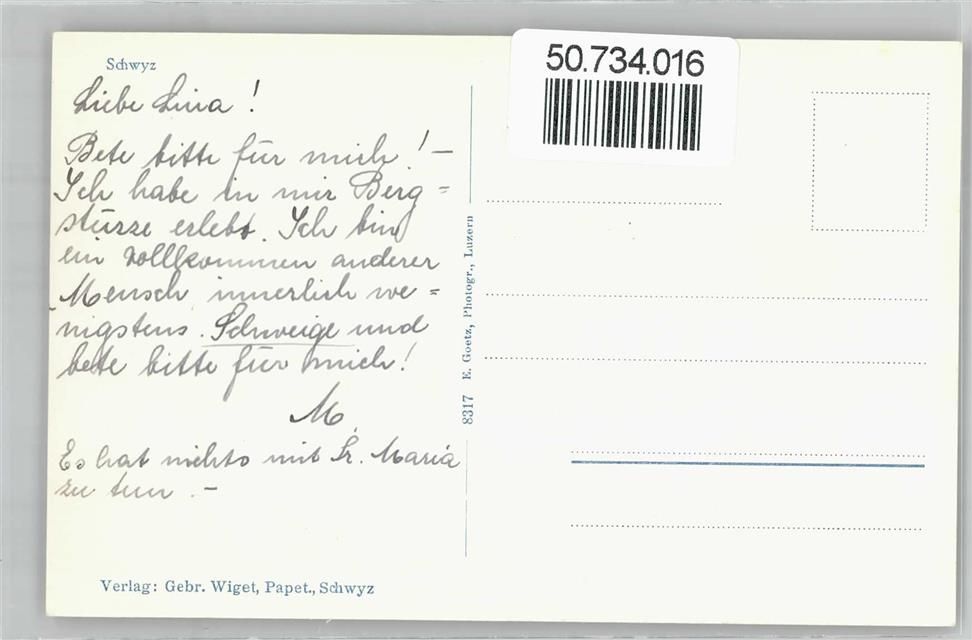 Schwyz
50.734.016
Liebe Lina!
Bete bitte für mich! —
Ich habe in mir Berg=
stürze erlebt. Ich bin
ein vollkommen anderer
Mensch, innerlich we=
nigstens. Schweige und
bete bitte für mich!
M.
Es hat nichts mit Sr. Maria
zu tun. —
8317 E. Goetz, Photogr., Luzern
Verlag: Gebr. Wiget, Papet., Schwyz